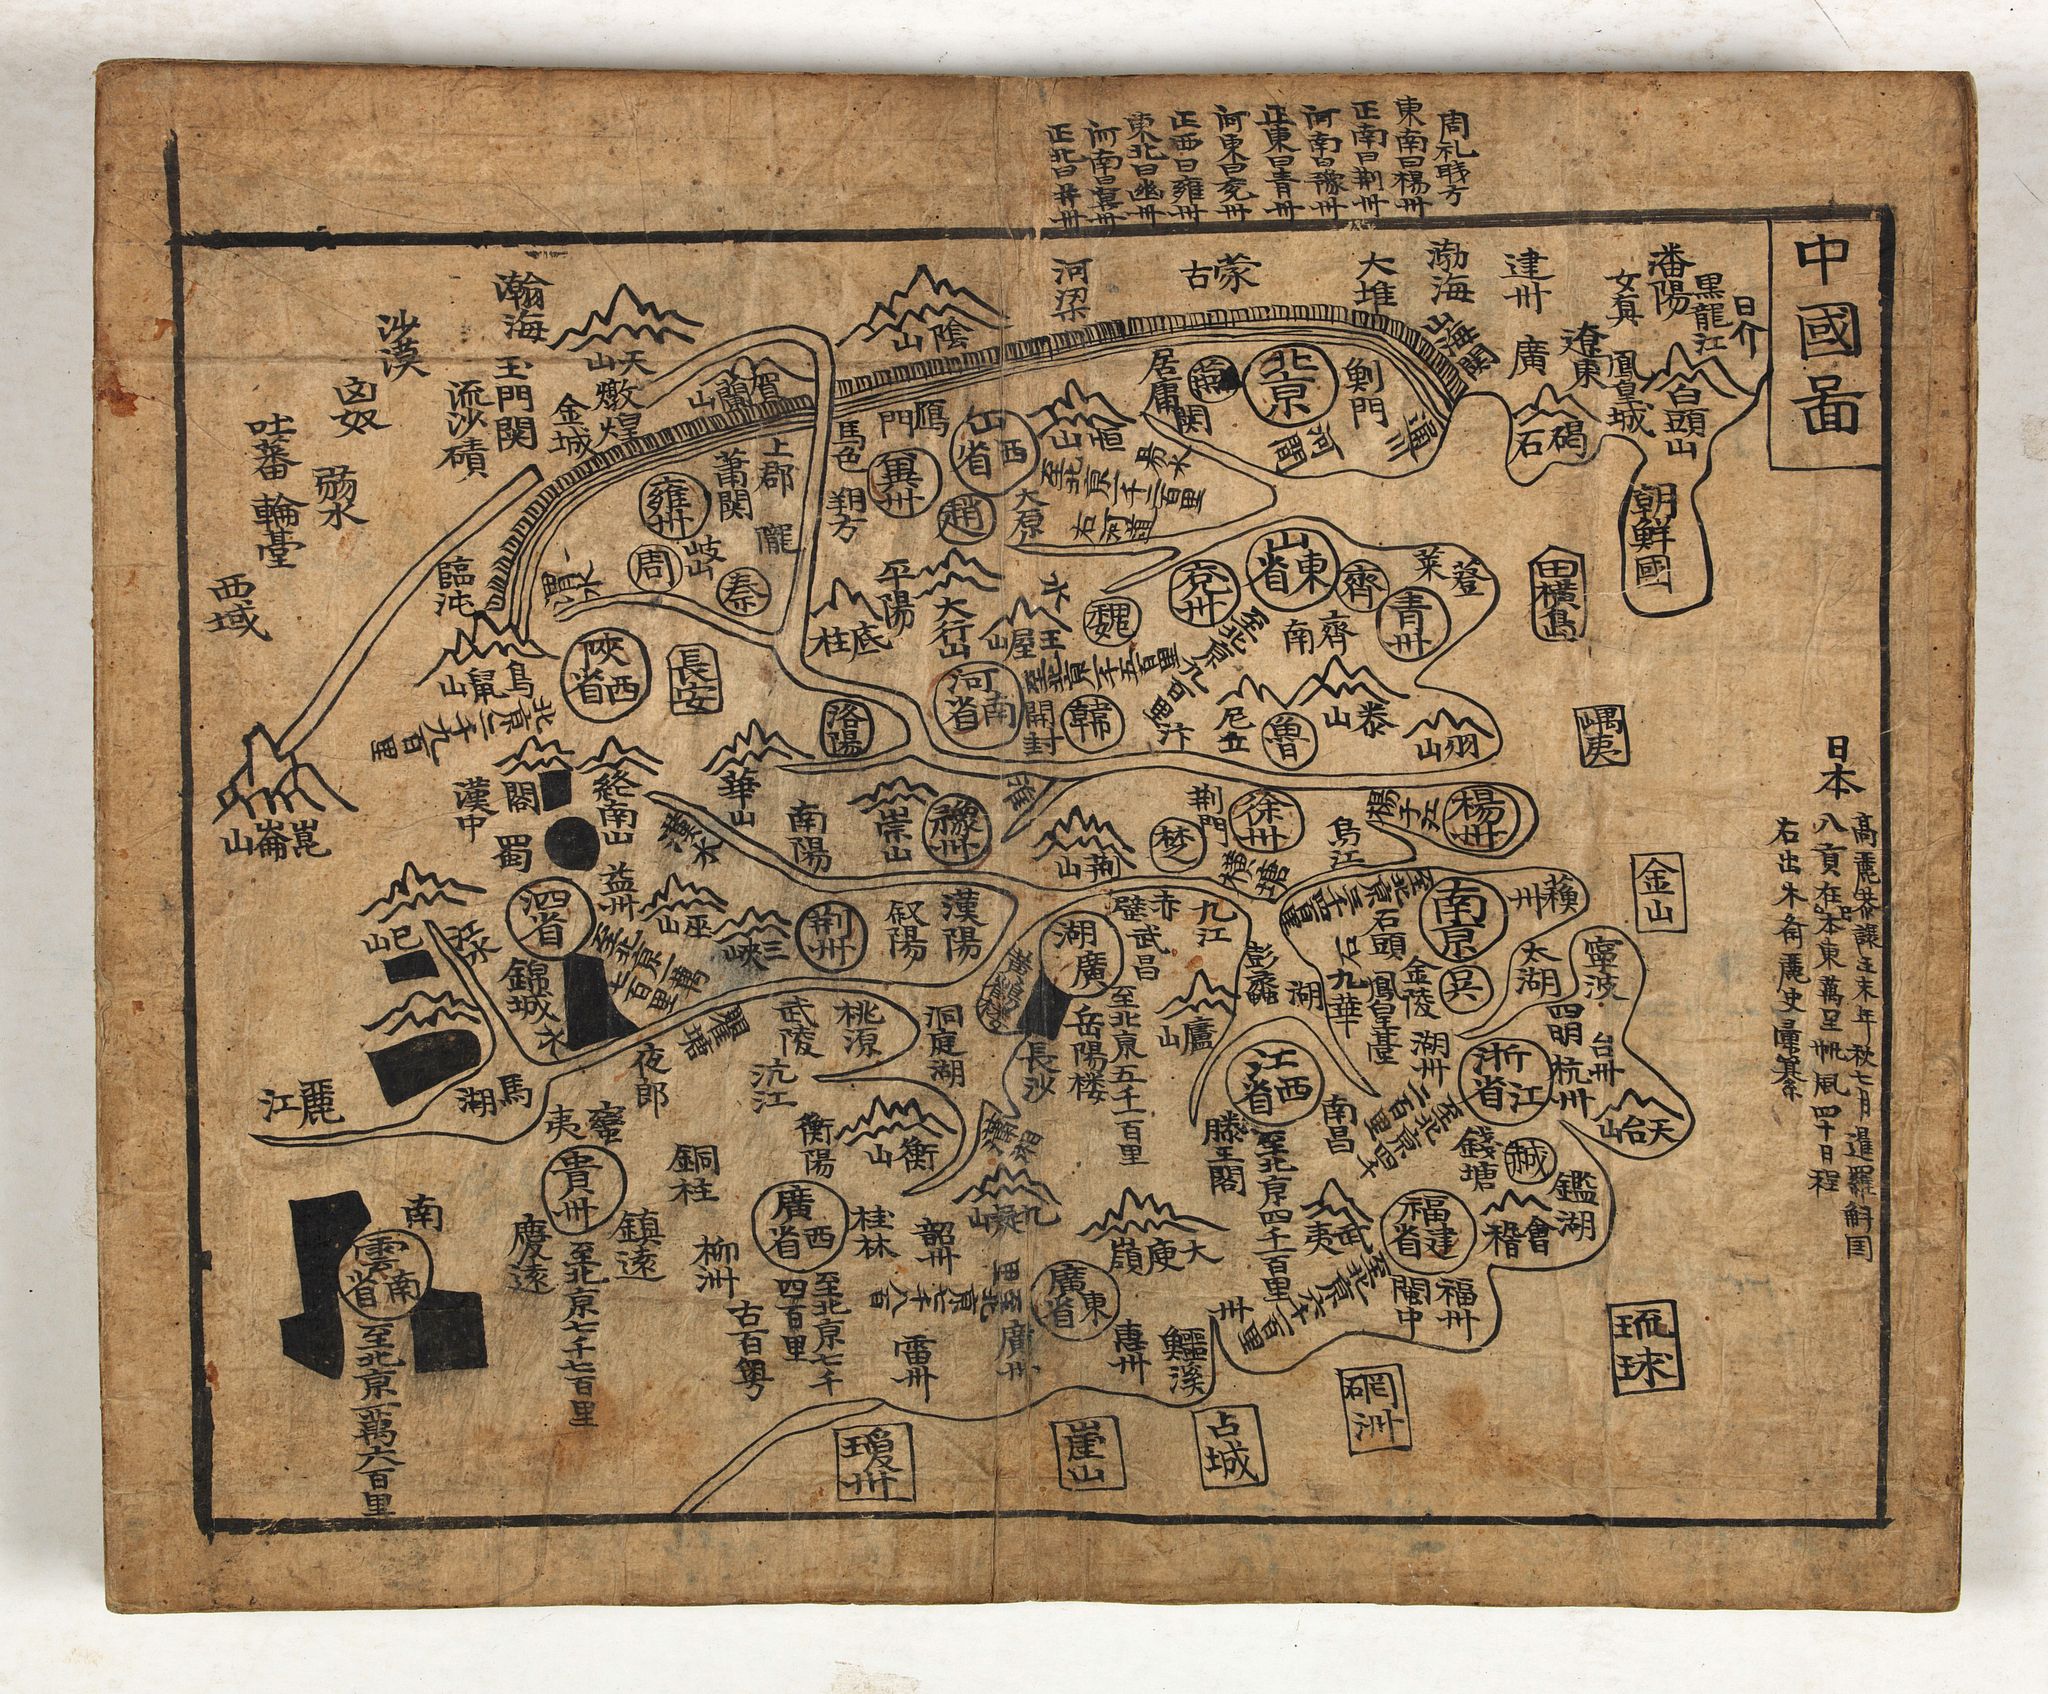 中國啚
周礼職方
東南曰楊州
正南曰荆州
河南曰豫州
正東曰青州
河東曰兗州
正西曰雍州
東北曰幽州
河南曰冀州
正北曰并州
日本
高麗恭讓王末年秋七月暹羅斛国
八貢在日本東萬里帆風四十日程
右出木斎麗史彙纂
黒龍江
瀋陽
女真
白頭山
鳳皇城
遼東
廣
建州
渤海
山海関
碣石
朝鮮國
田橫島
嵎夷
金山
琉球
大堆
蒙古
河梁
北京
薊門
通州
河間
居庸関
燕
陰山
天山
賀蘭山
瀚海
玉門関
沙漠
流沙磧
匈奴
弱水
吐蕃
輪臺
西域
燉煌
金城
臨洮
崑崙山
鳥鼠山
鴈門
馬邑
朔方
冀州
山西省
趙
恒山
大原
易水
至北京一千二百里
右河道
上郡
隴
蕭関
雍州
岐山
周
秦
渭水
陜西省
長安
北京二千九百里
平陽
大行山
王屋山
底柱
洛陽
河南省
開封
至北京一千五百里
韓
魏
汴
山東省
兗州
齊
青州
登
萊
齊南
至北京九百里
尼丘
魯
泰山
羽山
華山
終南山
漢中
閣
蜀
漢水
南陽
崇山
豫州
淮
荆山
楚
荆門
徐州
横塘
烏江
楊州
楊子江
泗省
益州
錦城
巫山
三峽
荆州
叙陽
漢陽
至北京一萬七百里
巴山
江水
瞿塘
夜郎
馬湖
麗江
武陵
桃源
沅江
洞庭湖
黃鶴樓
湖廣
赤壁
武昌
九江
岳陽楼
長沙
至北京五千一百里
瀟湘
廬山
彭蠡湖
石頭
九華
南京
吳
金陵
鳳皇臺
至北京三千四百里
蘓州
太湖
寧波
四明
台州
天台山
杭州
湖州
浙江省
錢塘
至北京四千二百里
越
鑑湖
會稽
江西省
南昌
滕王閣
至北京四千一百里
福建省
武夷
福州
閩中
至北京六千一百里
衡陽
衡山
九疑山
大庾嶺
廣東省
惠州
鱷溪
韶州
廣州
北京七千八百里
雷州
廣西省
桂林
至北京七千四百里
柳州
古百粤
銅柱
蠻夷
貴州
鎮遠
慶遠
至北京七千七百里
南
雲南省
至北京一萬六百里
瓊州
崖山
占城
硘洲